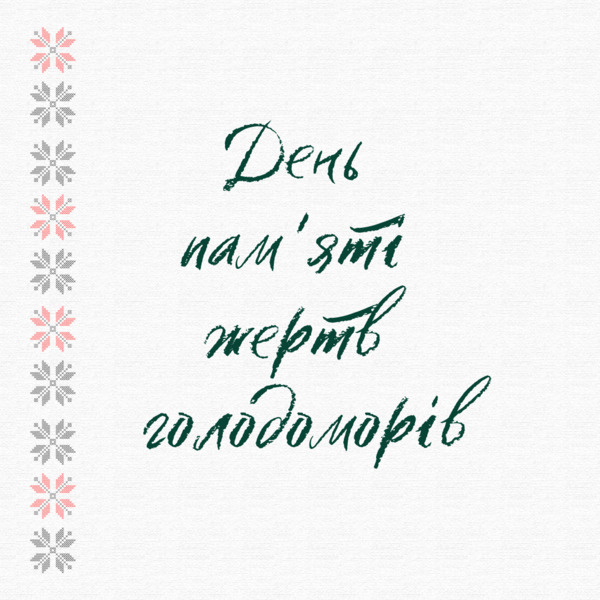 День
пам'яті
жертв
голодоморів